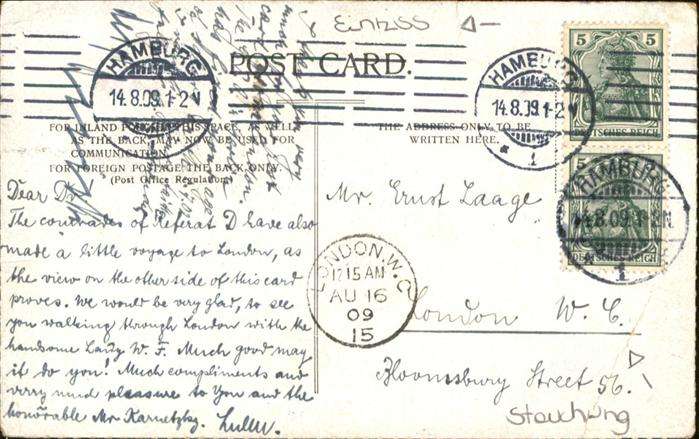 Einriss
HAMBURG
14.8.09.1-2N
1
HAMBURG
14.8.09.1-2N
* 1
5 5
DEUTSCHES REICH
HAMBURG
14.8.09.1-2N.
1
5
DEUTSCHES REICH
POST CARD.
FOR INLAND POSTAGE THIS SPACE, AS WELL
AS THE BACK, MAY NOW BE USED FOR
COMMUNICATION.
FOR FOREIGN POSTAGE THE BACK ONLY.
(Post Office Regulation)
THE ADDRESS ONLY TO BE
WRITTEN HERE.
Dear Dr,
The comrades of Referat D have also
made a little voyage to London, as
the view on the other side of this card
proves. We would be very glad, to see
you walking through London with the
handsome Lady W. F. Much good may
it do you! Much compliments and
verry much pleasure to You and the
honorable Mr Karnetzky.
Mr. Ernst Laage
LONDON, W.C
12.15 AM
AU 16
09
15
London W. C.
Bloomsbury Street 56.
Stauchung